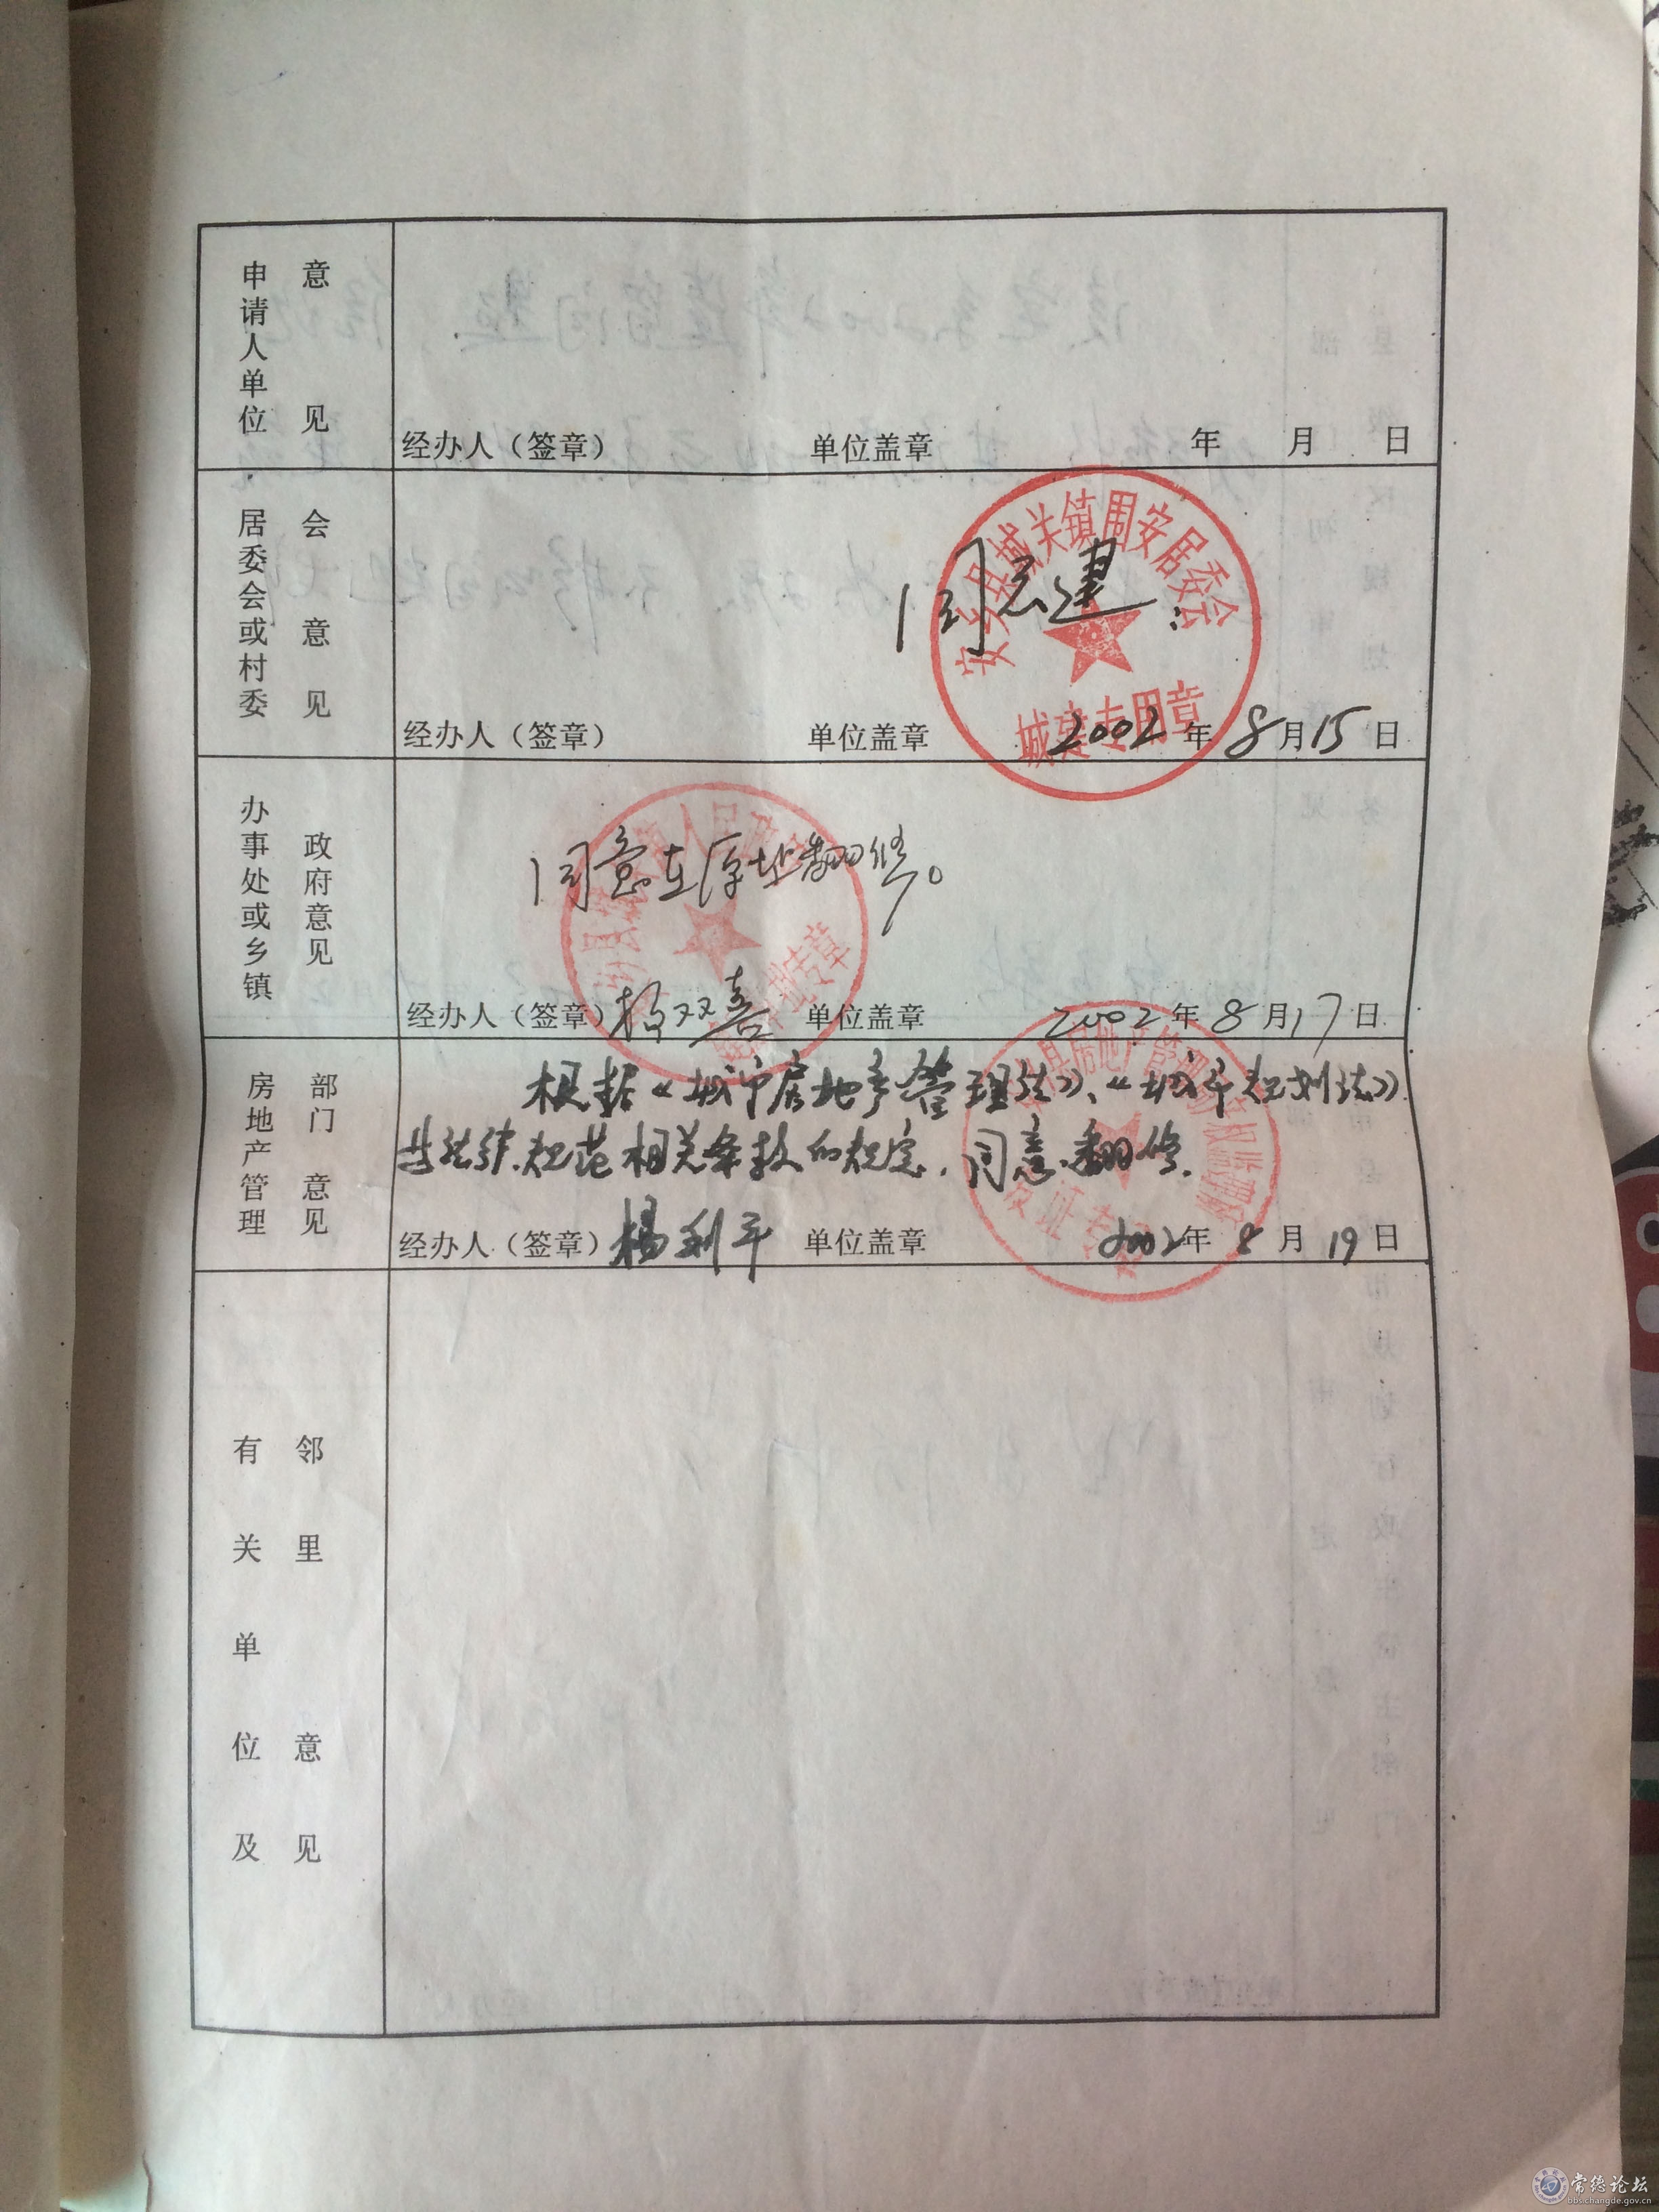 申请人单位意见
经办人（签章） 单位盖章 年 月 日
居委会或村委会意见
同意建
安乡县城关镇围安居委会
城建专用章
经办人（签章） 单位盖章 2002年8月15日
办事处或乡镇政府意见
同意在原址翻修。
经办人（签章）杨双喜 单位盖章 2002年8月17日
房地产管理部门意见
根据《城市房地产管理法》、《城市规划法》
等法律、规范相关条款的规定，同意翻修.
经办人（签章）杨利平 单位盖章 2002年8月19日
有关单位及邻里意见
常德论坛
bbs.changde.gov.cn